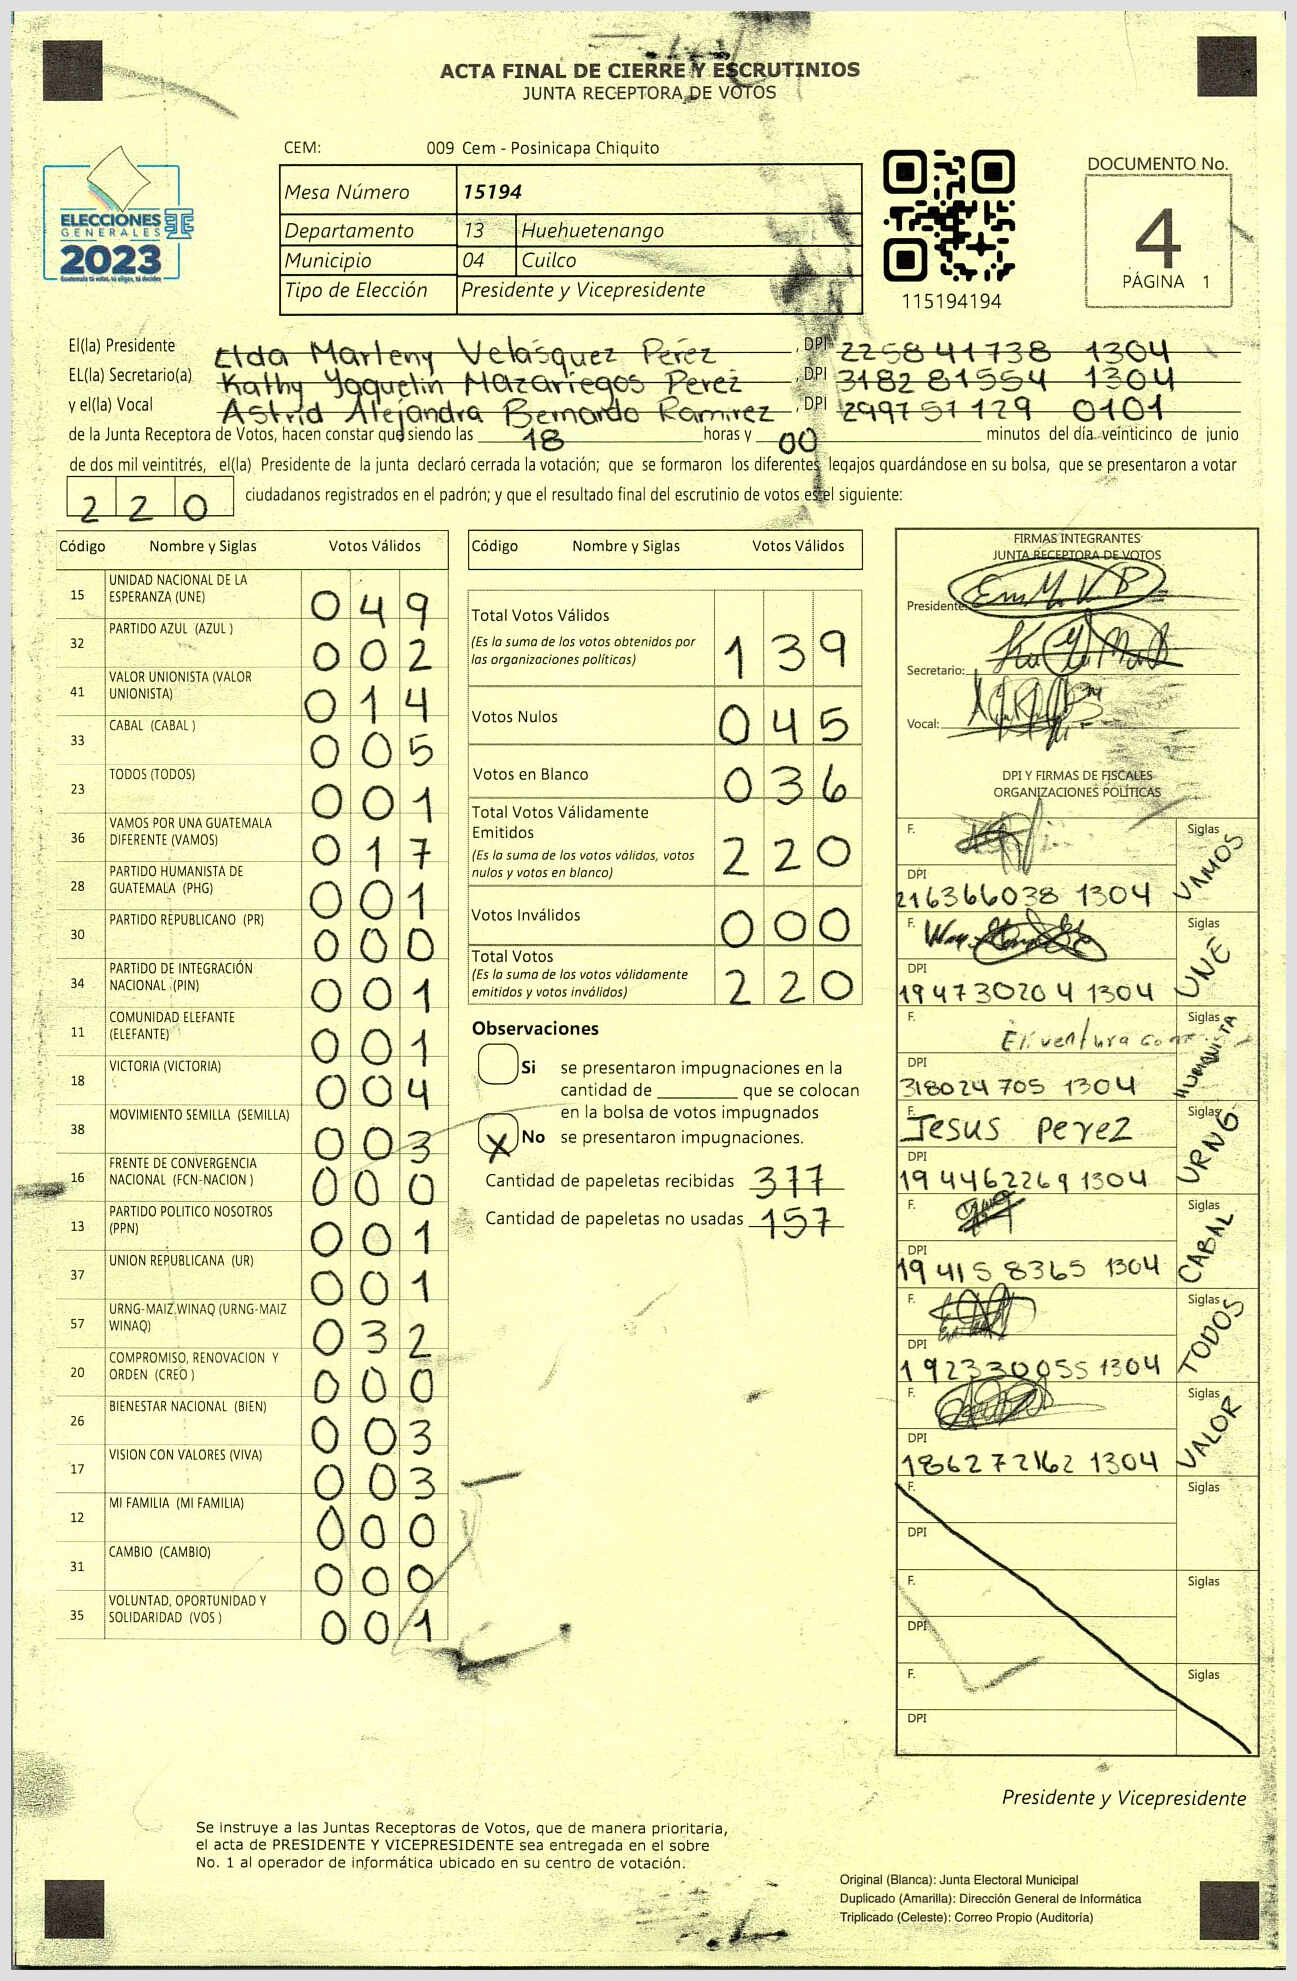 ACTA FINAL DE CIERRE Y ESCRUTINIOS
JUNTA RECEPTORA DE VOTOS
CEM: 009 Cem - Posinicapa Chiquito
Mesa Número 15194
Departamento 13 Huehuetenango
Municipio 04 Cuilco
Tipo de Elección Presidente y Vicepresidente
ELECCIONES
GENERALES
2023
Guatemala tú votas, tú eliges, tú decides
115194194
DOCUMENTO No.
4
PÁGINA 1
El(la) Presidente Elda Marleny Velásquez Pérez , DPI 2258 41738 1304
EL(la) Secretario(a) Kathy Yaquelin Mazariegos Perez , DPI 3182 81554 1304
y el(la) Vocal Astrid Alejandra Bernardo Ramirez , DPI 2997 57129 0101
de la Junta Receptora de Votos, hacen constar que siendo las 18 horas y 00 minutos del día veinticinco de junio
de dos mil veintitrés, el(la) Presidente de la junta declaró cerrada la votación; que se formaron los diferentes legajos guardándose en su bolsa, que se presentaron a votar
220 ciudadanos registrados en el padrón; y que el resultado final del escrutinio de votos es el siguiente:
Código Nombre y Siglas Votos Válidos
15 UNIDAD NACIONAL DE LA ESPERANZA (UNE) 049
32 PARTIDO AZUL (AZUL ) 002
41 VALOR UNIONISTA (VALOR UNIONISTA) 014
33 CABAL (CABAL ) 005
23 TODOS (TODOS) 001
36 VAMOS POR UNA GUATEMALA DIFERENTE (VAMOS) 017
28 PARTIDO HUMANISTA DE GUATEMALA (PHG) 001
30 PARTIDO REPUBLICANO (PR) 000
34 PARTIDO DE INTEGRACIÓN NACIONAL (PIN) 001
11 COMUNIDAD ELEFANTE (ELEFANTE) 001
18 VICTORIA (VICTORIA) 004
38 MOVIMIENTO SEMILLA (SEMILLA) 003
16 FRENTE DE CONVERGENCIA NACIONAL (FCN-NACION ) 000
13 PARTIDO POLITICO NOSOTROS (PPN) 001
37 UNION REPUBLICANA (UR) 001
57 URNG-MAIZ,WINAQ (URNG-MAIZ WINAQ) 032
20 COMPROMISO, RENOVACION Y ORDEN (CREO ) 000
26 BIENESTAR NACIONAL (BIEN) 003
17 VISION CON VALORES (VIVA) 003
12 MI FAMILIA (MI FAMILIA) 000
31 CAMBIO (CAMBIO) 000
35 VOLUNTAD, OPORTUNIDAD Y SOLIDARIDAD (VOS ) 001
Código Nombre y Siglas Votos Válidos
Total Votos Válidos 139
(Es la suma de los votos obtenidos por
las organizaciones políticas)
Votos Nulos 045
Votos en Blanco 036
Total Votos Válidamente
Emitidos 220
(Es la suma de los votos válidos, votos
nulos y votos en blanco)
Votos Inválidos 000
Total Votos 220
(Es la suma de los votos válidamente
emitidos y votos inválidos)
Observaciones
Si se presentaron impugnaciones en la
cantidad de ________ que se colocan
en la bolsa de votos impugnados
X No se presentaron impugnaciones.
Cantidad de papeletas recibidas 377
Cantidad de papeletas no usadas 157
FIRMAS INTEGRANTES
JUNTA RECEPTORA DE VOTOS
Presidente:
Secretario:
Vocal:
DPI Y FIRMAS DE FISCALES
ORGANIZACIONES POLÍTICAS
F. Siglas VAMOS
DPI
216366038 1304
F. Siglas UNE
DPI
19473 0204 1304
F. Siglas HUMANISTA
DPI
318024 705 1304
F. Jesus perez Siglas URNG
DPI
19 4462269 1304
F. Siglas CABAL
DPI
19 415 8365 1304
F. Siglas TODOS
DPI
192330055 1304
F. Siglas VALOR
DPI
186272162 1304
F. Siglas
DPI
F. Siglas
DPI
F. Siglas
DPI
Presidente y Vicepresidente
Se instruye a las Juntas Receptoras de Votos, que de manera prioritaria,
el acta de PRESIDENTE Y VICEPRESIDENTE sea entregada en el sobre
No. 1 al operador de informática ubicado en su centro de votación.
Original (Blanca): Junta Electoral Municipal
Duplicado (Amarilla): Dirección General de Informática
Triplicado (Celeste): Correo Propio (Auditoría)